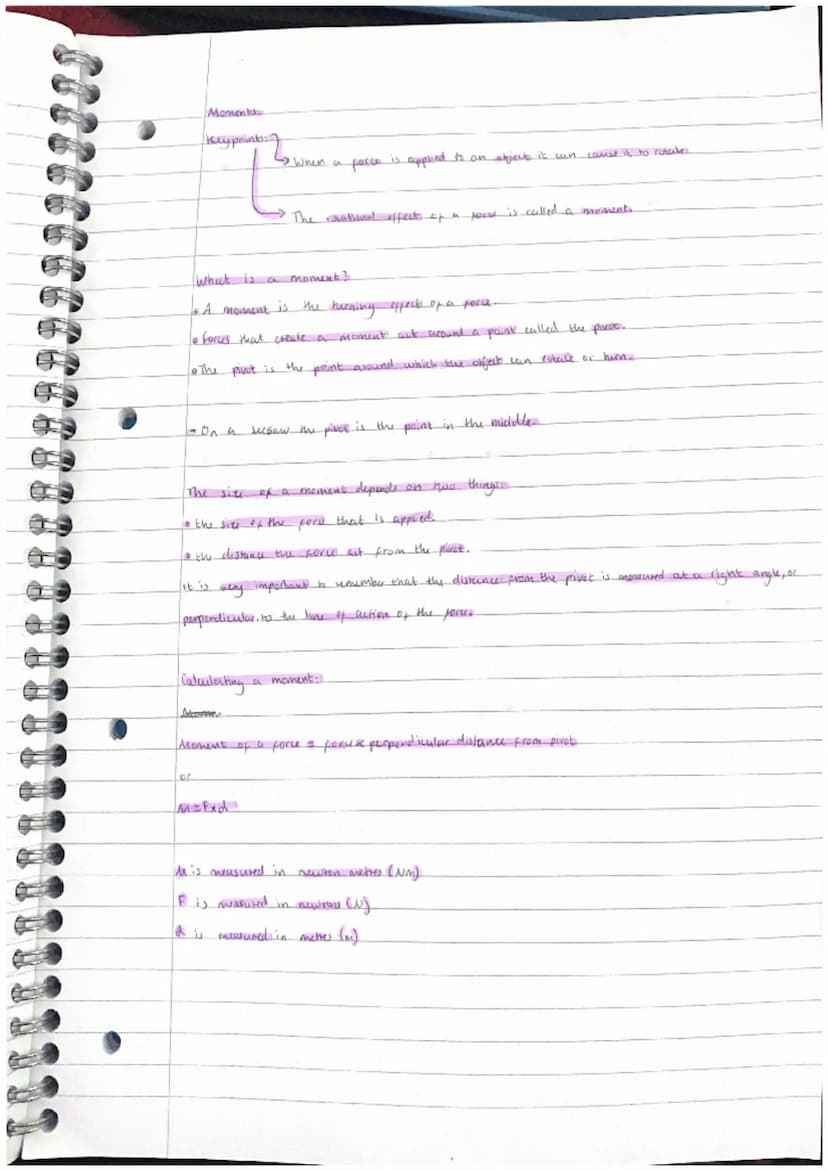 Moments:
Keypoints:
When a force is applied to an object it can cause it to rotate.
The rotational effect of a force is called a moment.
What is a moment?
• A moment is the turning effect of a force.
• Forces that create a moment act around a point called the pivot.
• The pivot is the point around which the object can rotate or turn.
- On a seesaw the pivot is the point in the middle.
The size of a moment depends on two things:
• the size of the force that is applied.
• the distance the force act from the pivot.
It is very important to remember that the distance from the pivot is measured at a right angle, or
perpendicular, to the line of action of the force.
Calculating a moment:
Moment of a force = force x perpendicular distance from pivot
or
M = F x d
M is measured in newton metres (Nm)
F is measured in newtons (N)
d is measured in metres (m)